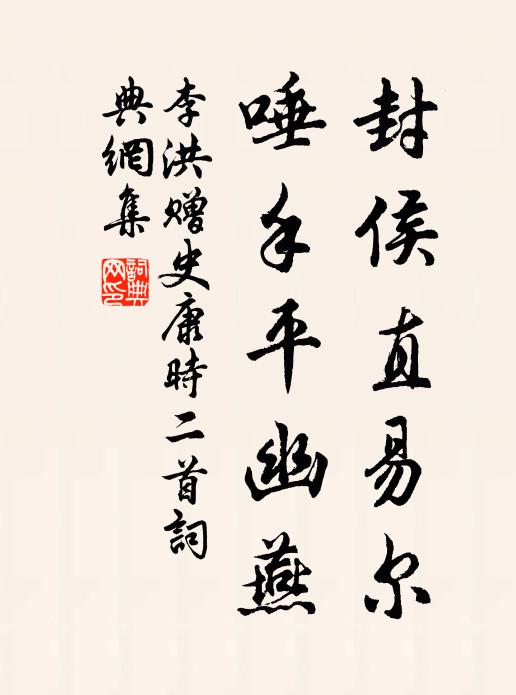 封侯直易尔
唾手平幽燕
李洪赠史康時二首詞
典網集
詞典网印